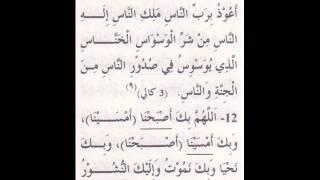 أَعُوْذُ بِرَبِّ النَّاسِ مَلِكِ النَّاسِ إِلَهِ
النَّاسِ مِنْ شَرِّ الْوَسْوَاسِ الْخَنَّاسِ
الَّذِي يُوَسْوِسُ فِي صُدُوْرِ النَّاسِ مِنَ
الْجِنَّةِ وَالنَّاسِ. (3 كالي) (٩)
12- اَللَّهُمَّ بِكَ أَصْبَحْنَا (أَمْسَيْنَا)،
وَبِكَ أَمْسَيْنَا (أَصْبَحْنَا)، وَبِكَ
نَحْيَا وَبِكَ نَمُوْتُ وَإِلَيْكَ النُّشُوْرُ